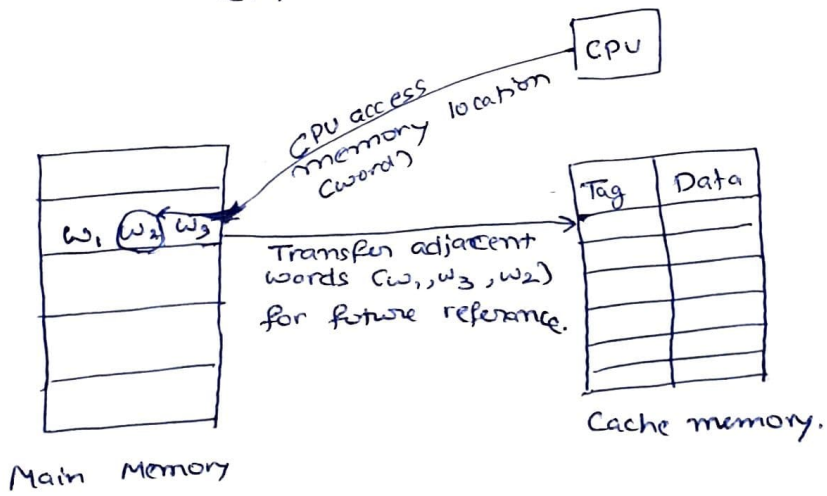 CPU
CPU access
memory location
(word)
Tag Data
W1 W2 W3
Transfer adjacent
words (w1, w3, w2)
for future referance.
Cache memory.
Main Memory